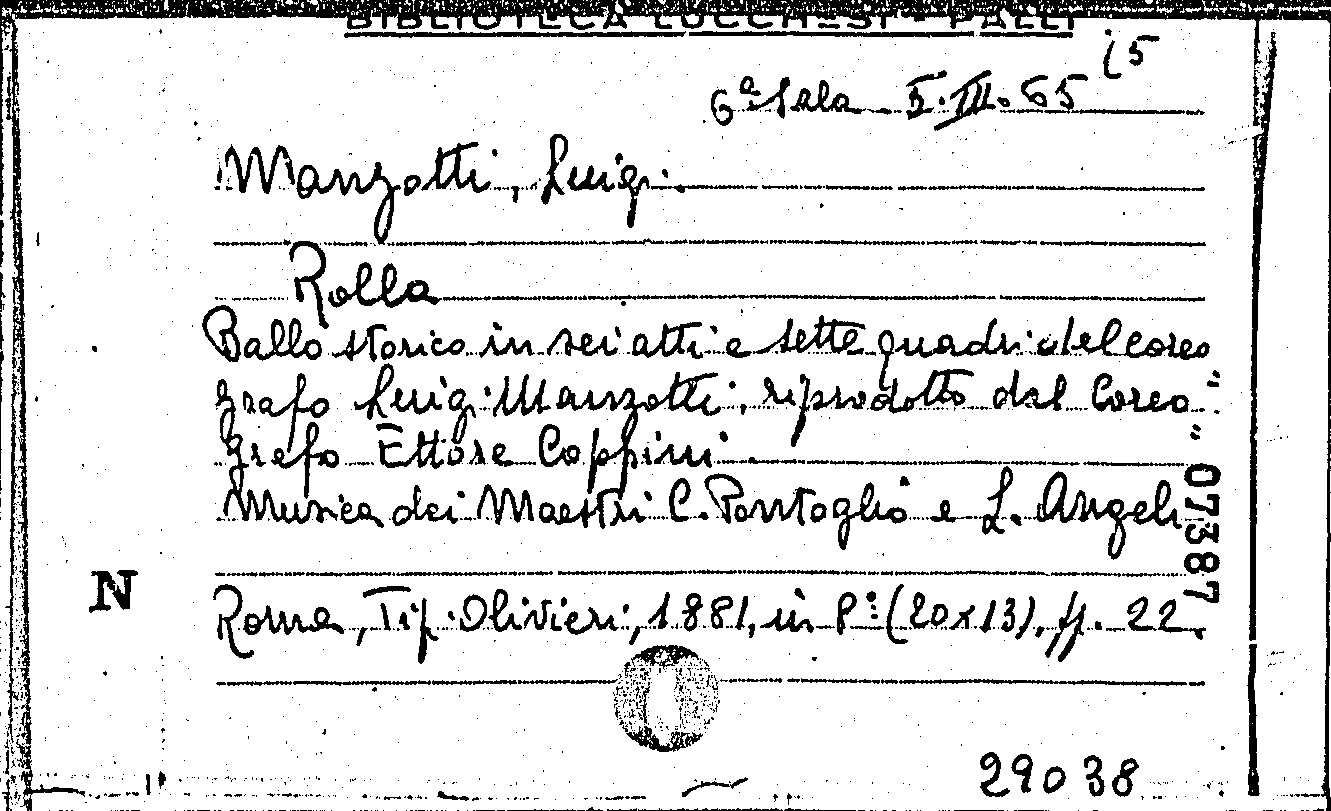 BIBLIOTECA LUCCHESI - PALLI
6ª Sala 5.III.65 (5
Manzotti, Luigi.
Rolla
Ballo storico in sei atti e sette quadri del coreo
grafo Luigi Manzotti, riprodotto dal Coreo
grafo Ettore Coppini.
Musica dei Maestri C. Pontoglio e L. Angeli
Roma, Tip. Olivieri, 1881, in 8º (20x13), ff. 22.
N
07387
29038